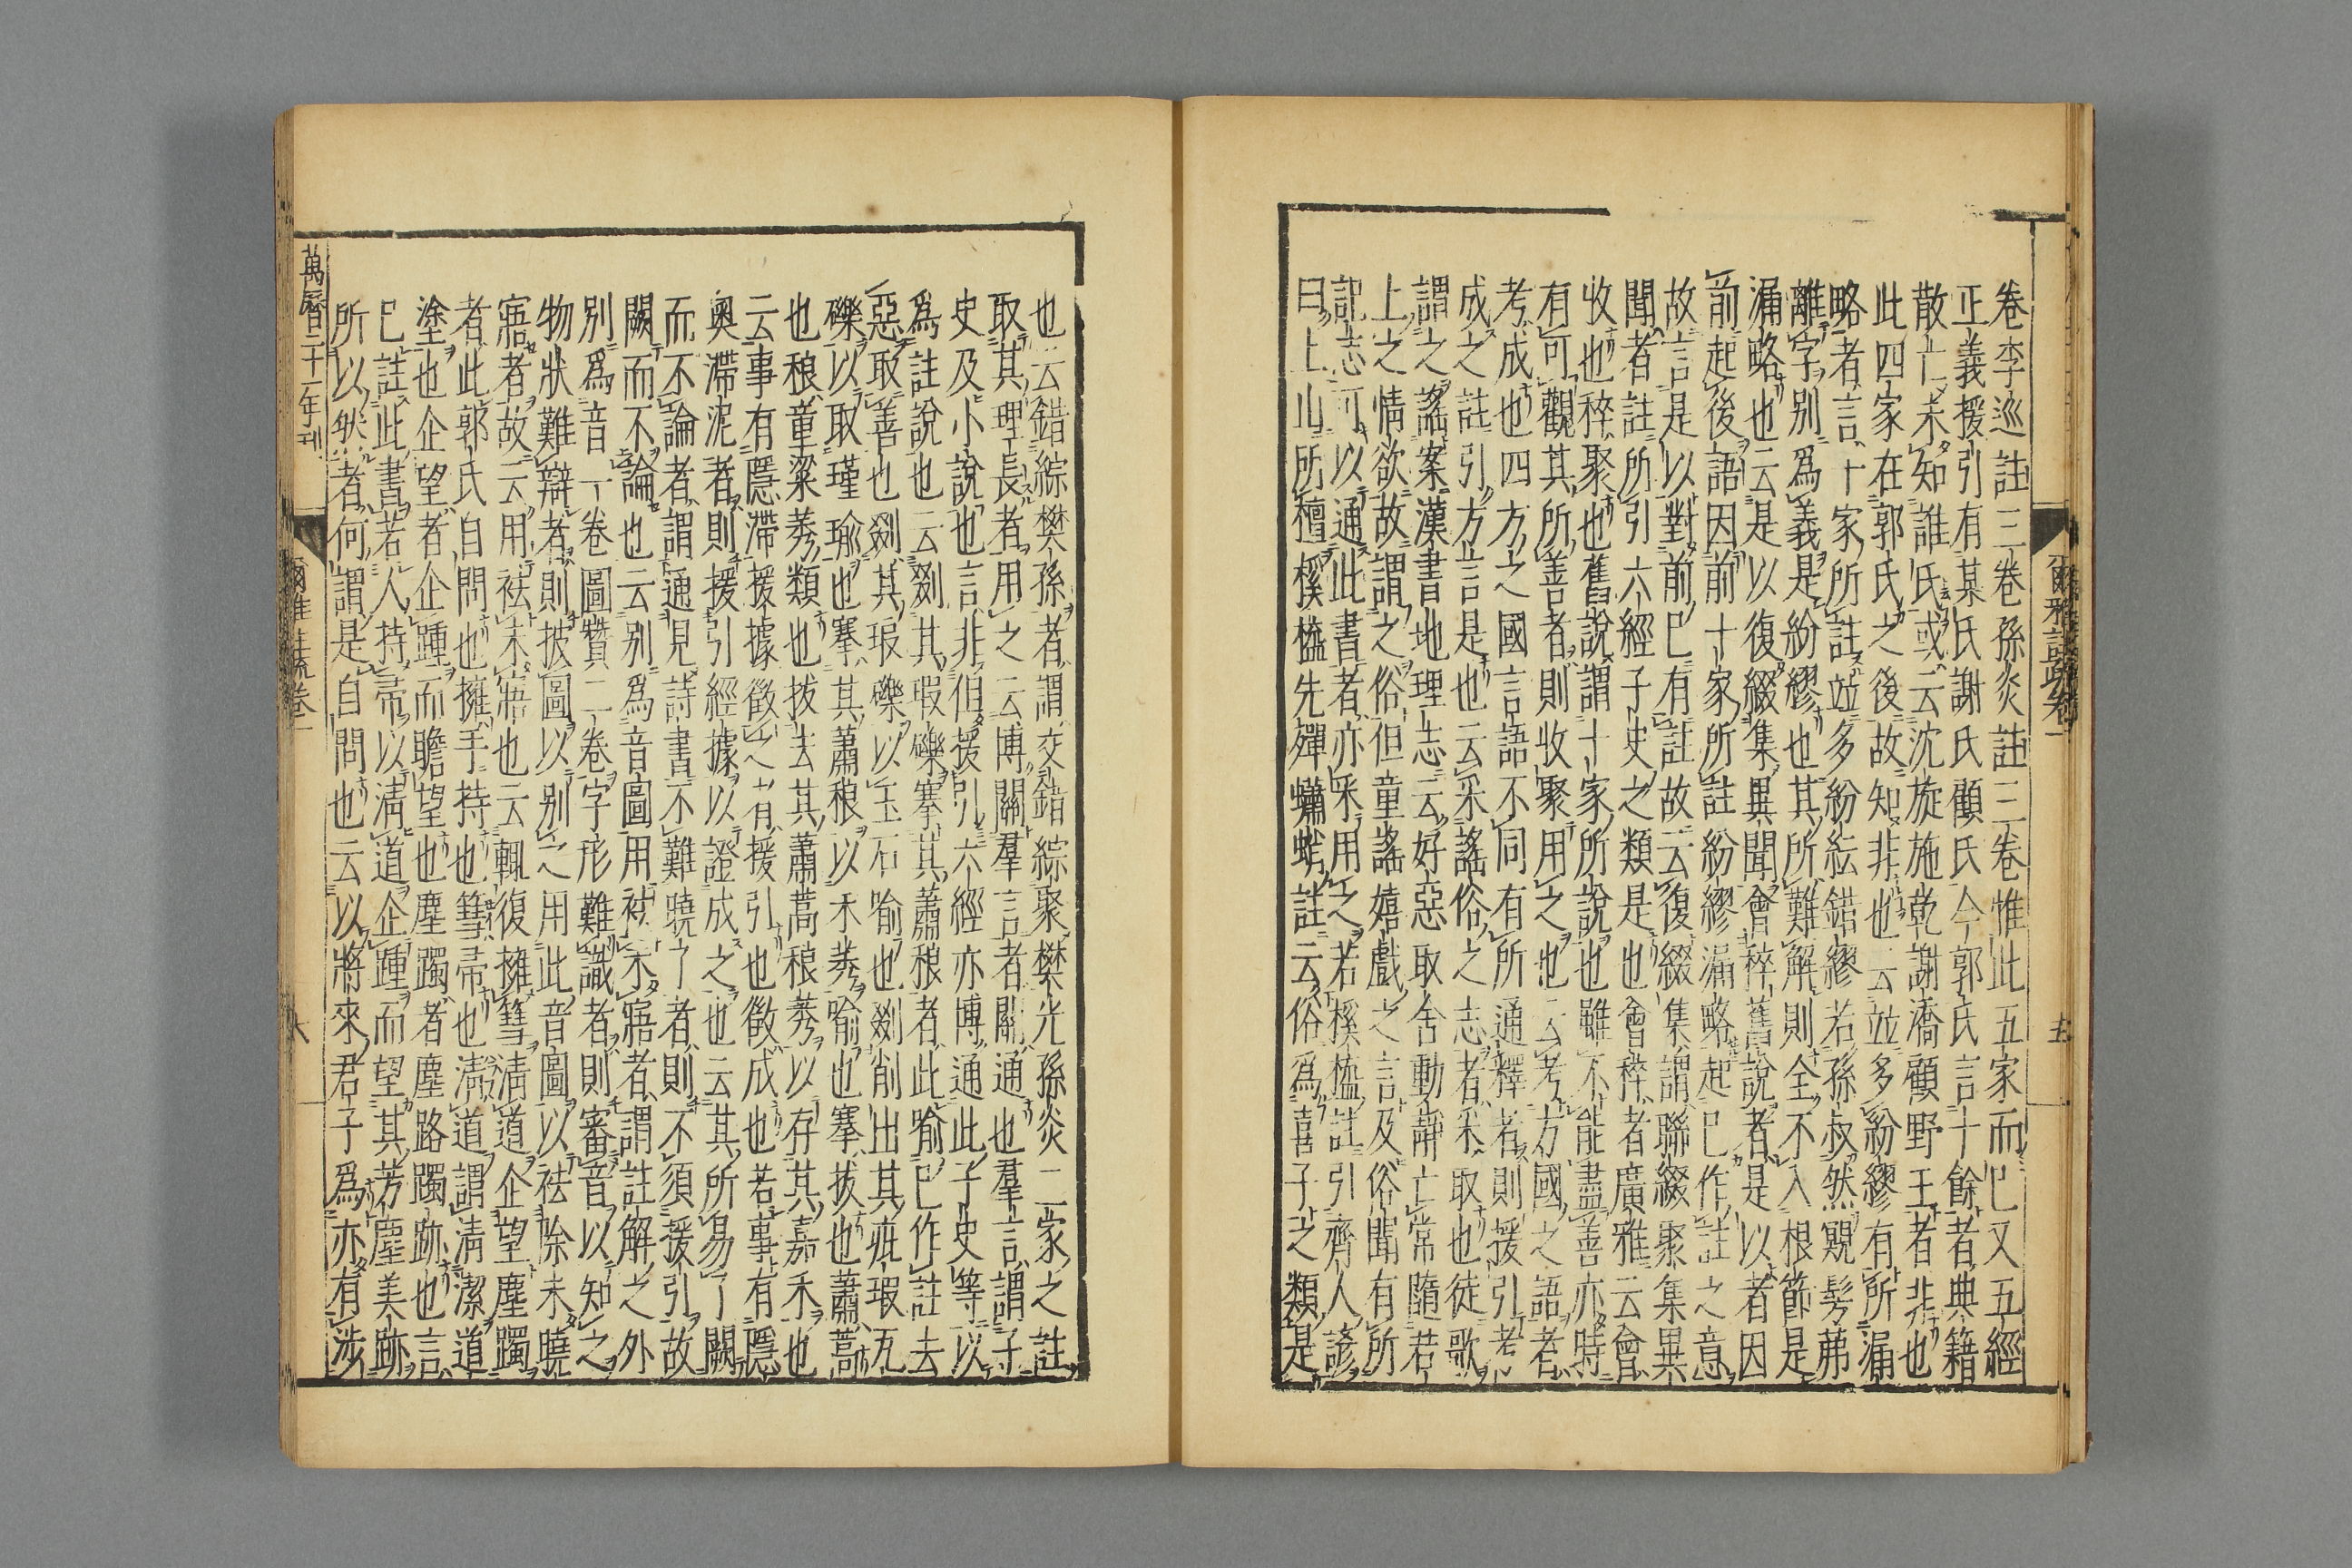 爾雅註疏卷一 五
卷李巡註三卷孫炎註三卷惟此五家而已又五經
正義援引有某氏謝氏顧氏今郭氏言十餘者典籍
散亡未知誰氏或云沈旋施乾謝嶠顧野王者非也
此四家在郭氏之後故知非也云並多紛繆有所漏
略者言十家所註並多紛紜錯繆若孫叔然覭髳茀
離字别爲義是紛繆也其所難解則全不入根節是
漏略也云是以復綴集異聞會稡舊說者是以者因
前起後語因前十家所註紛繆漏略起已作註之意
故言是以對前已有註故云復綴集謂聯綴聚集異
聞者註所引六經子史之類是也會稡者廣雅云會
收也稡聚也舊說謂十家所說也雖不能盡善亦時
有可觀其所善者則收聚用之也云考方國之語者
考成也四方之國言語不同有所通釋者則援引考
成之註引方言是也云采謠俗之志者采取也徒歌
謂之謠案漢書地理志云好惡取舍動静亡常隨若
上之情欲故謂之俗但童謠嬉戲之言及俗聞有所
記志可以通此書者亦采用之若榽橀註引齊人諺
曰上山斫檀榽橀先殫蠨蛸註云俗爲喜子之類是
也云錯綜樊孫者謂交錯綜聚樊光孫炎二家之註
取其理長者用之云博關羣言者關通也羣言謂子
史及小說也言非但援引六經亦博通此子史等以
爲註說也云剟其瑕礫搴其蕭稂者此喻已作註去
惡取善也剟其瑕礫以玉石喻也剟削出其疵瑕瓦
礫以取瑾瑜也搴其蕭稂以禾莠喻也搴拔也蕭蒿
也稂童粱莠類也拔去其蕭蒿稂莠以存其嘉禾也
云事有隱滯援據徵之者援引也徵成也若事有隱
奥滯泥者則援引經據以證成之也云其所易了闕
而不論者謂通見詩書不難曉了者則不須援引故
闕而不論也云别爲音圖用祛未寤者謂註解之外
别爲音一卷圖贊二卷字形難識者則審音以知之
物狀難辯者則披圖以别之用此音圖以祛除未曉
寤者故云用祛未寤也云輒復擁篲清道企望塵躅
者此郭氏自問也擁手持也篲帚也清道謂清潔道
塗也企望者企踵而瞻望也塵躅者塵路躅跡也言
已註此書若人持帚以清道企踵而望其芳塵美跡
所以然者何謂是自問也云以將來君子爲亦有涉
萬曆二十一年刊 爾雅註疏卷一 六